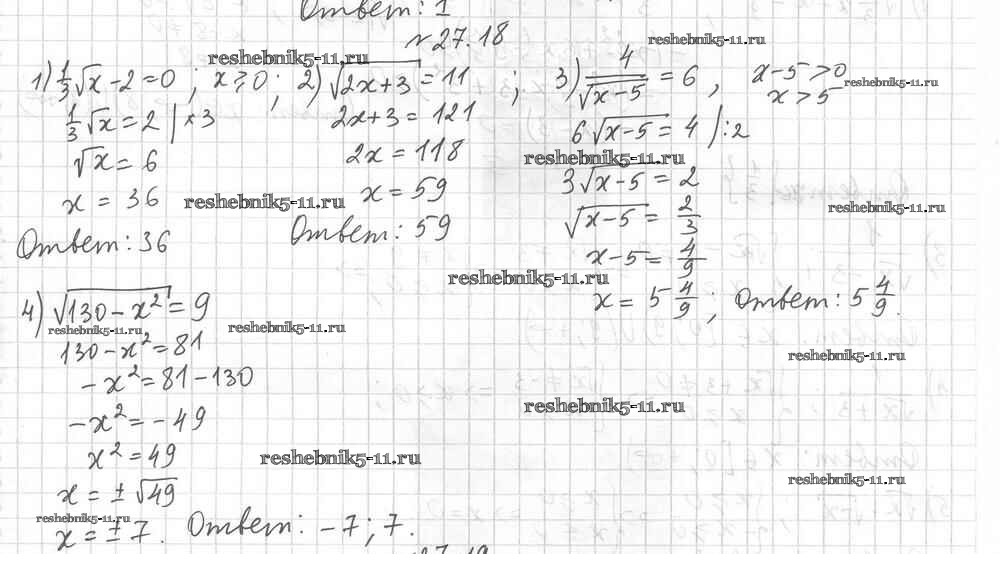 Ответ: 1
№27.18
1) 1/3 √x − 2 = 0 ; x ⩾ 0 ;
1/3 √x = 2 | × 3
√x = 6
x = 36
Ответ: 36
2) √(2x+3) = 11 ;
2x+3 = 121
2x = 118
x = 59
Ответ: 59
3) 4/√(x−5) = 6 , x−5 > 0
x > 5
6√(x−5) = 4 | :2
3√(x−5) = 2
√(x−5) = 2/3
x−5 = 4/9
x = 5 4/9 ; Ответ: 5 4/9.
4) √(130 − x²) = 9
130 − x² = 81
−x² = 81 − 130
−x² = −49
x² = 49
x = ± √49
x = ± 7. Ответ: −7 ; 7.
reshebnik5-11.ru
reshebnik5-11.ru
reshebnik5-11.ru
reshebnik5-11.ru
reshebnik5-11.ru
reshebnik5-11.ru
reshebnik5-11.ru
reshebnik5-11.ru
reshebnik5-11.ru
reshebnik5-11.ru
reshebnik5-11.ru
reshebnik5-11.ru
reshebnik5-11.ru
reshebnik5-11.ru